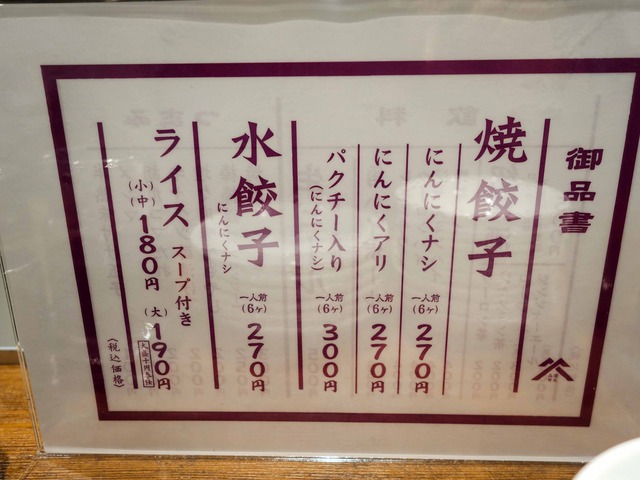 御品書
焼餃子
にんにくナシ 一人前(6ヶ) 270円
にんにくアリ 一人前(6ヶ) 270円
パクチー入り(にんにくナシ) 一人前(6ヶ) 300円
水餃子
にんにくナシ 一人前(6ヶ) 270円
ライス スープ付き
(小)(中)180円 (大)190円
(税込価格)